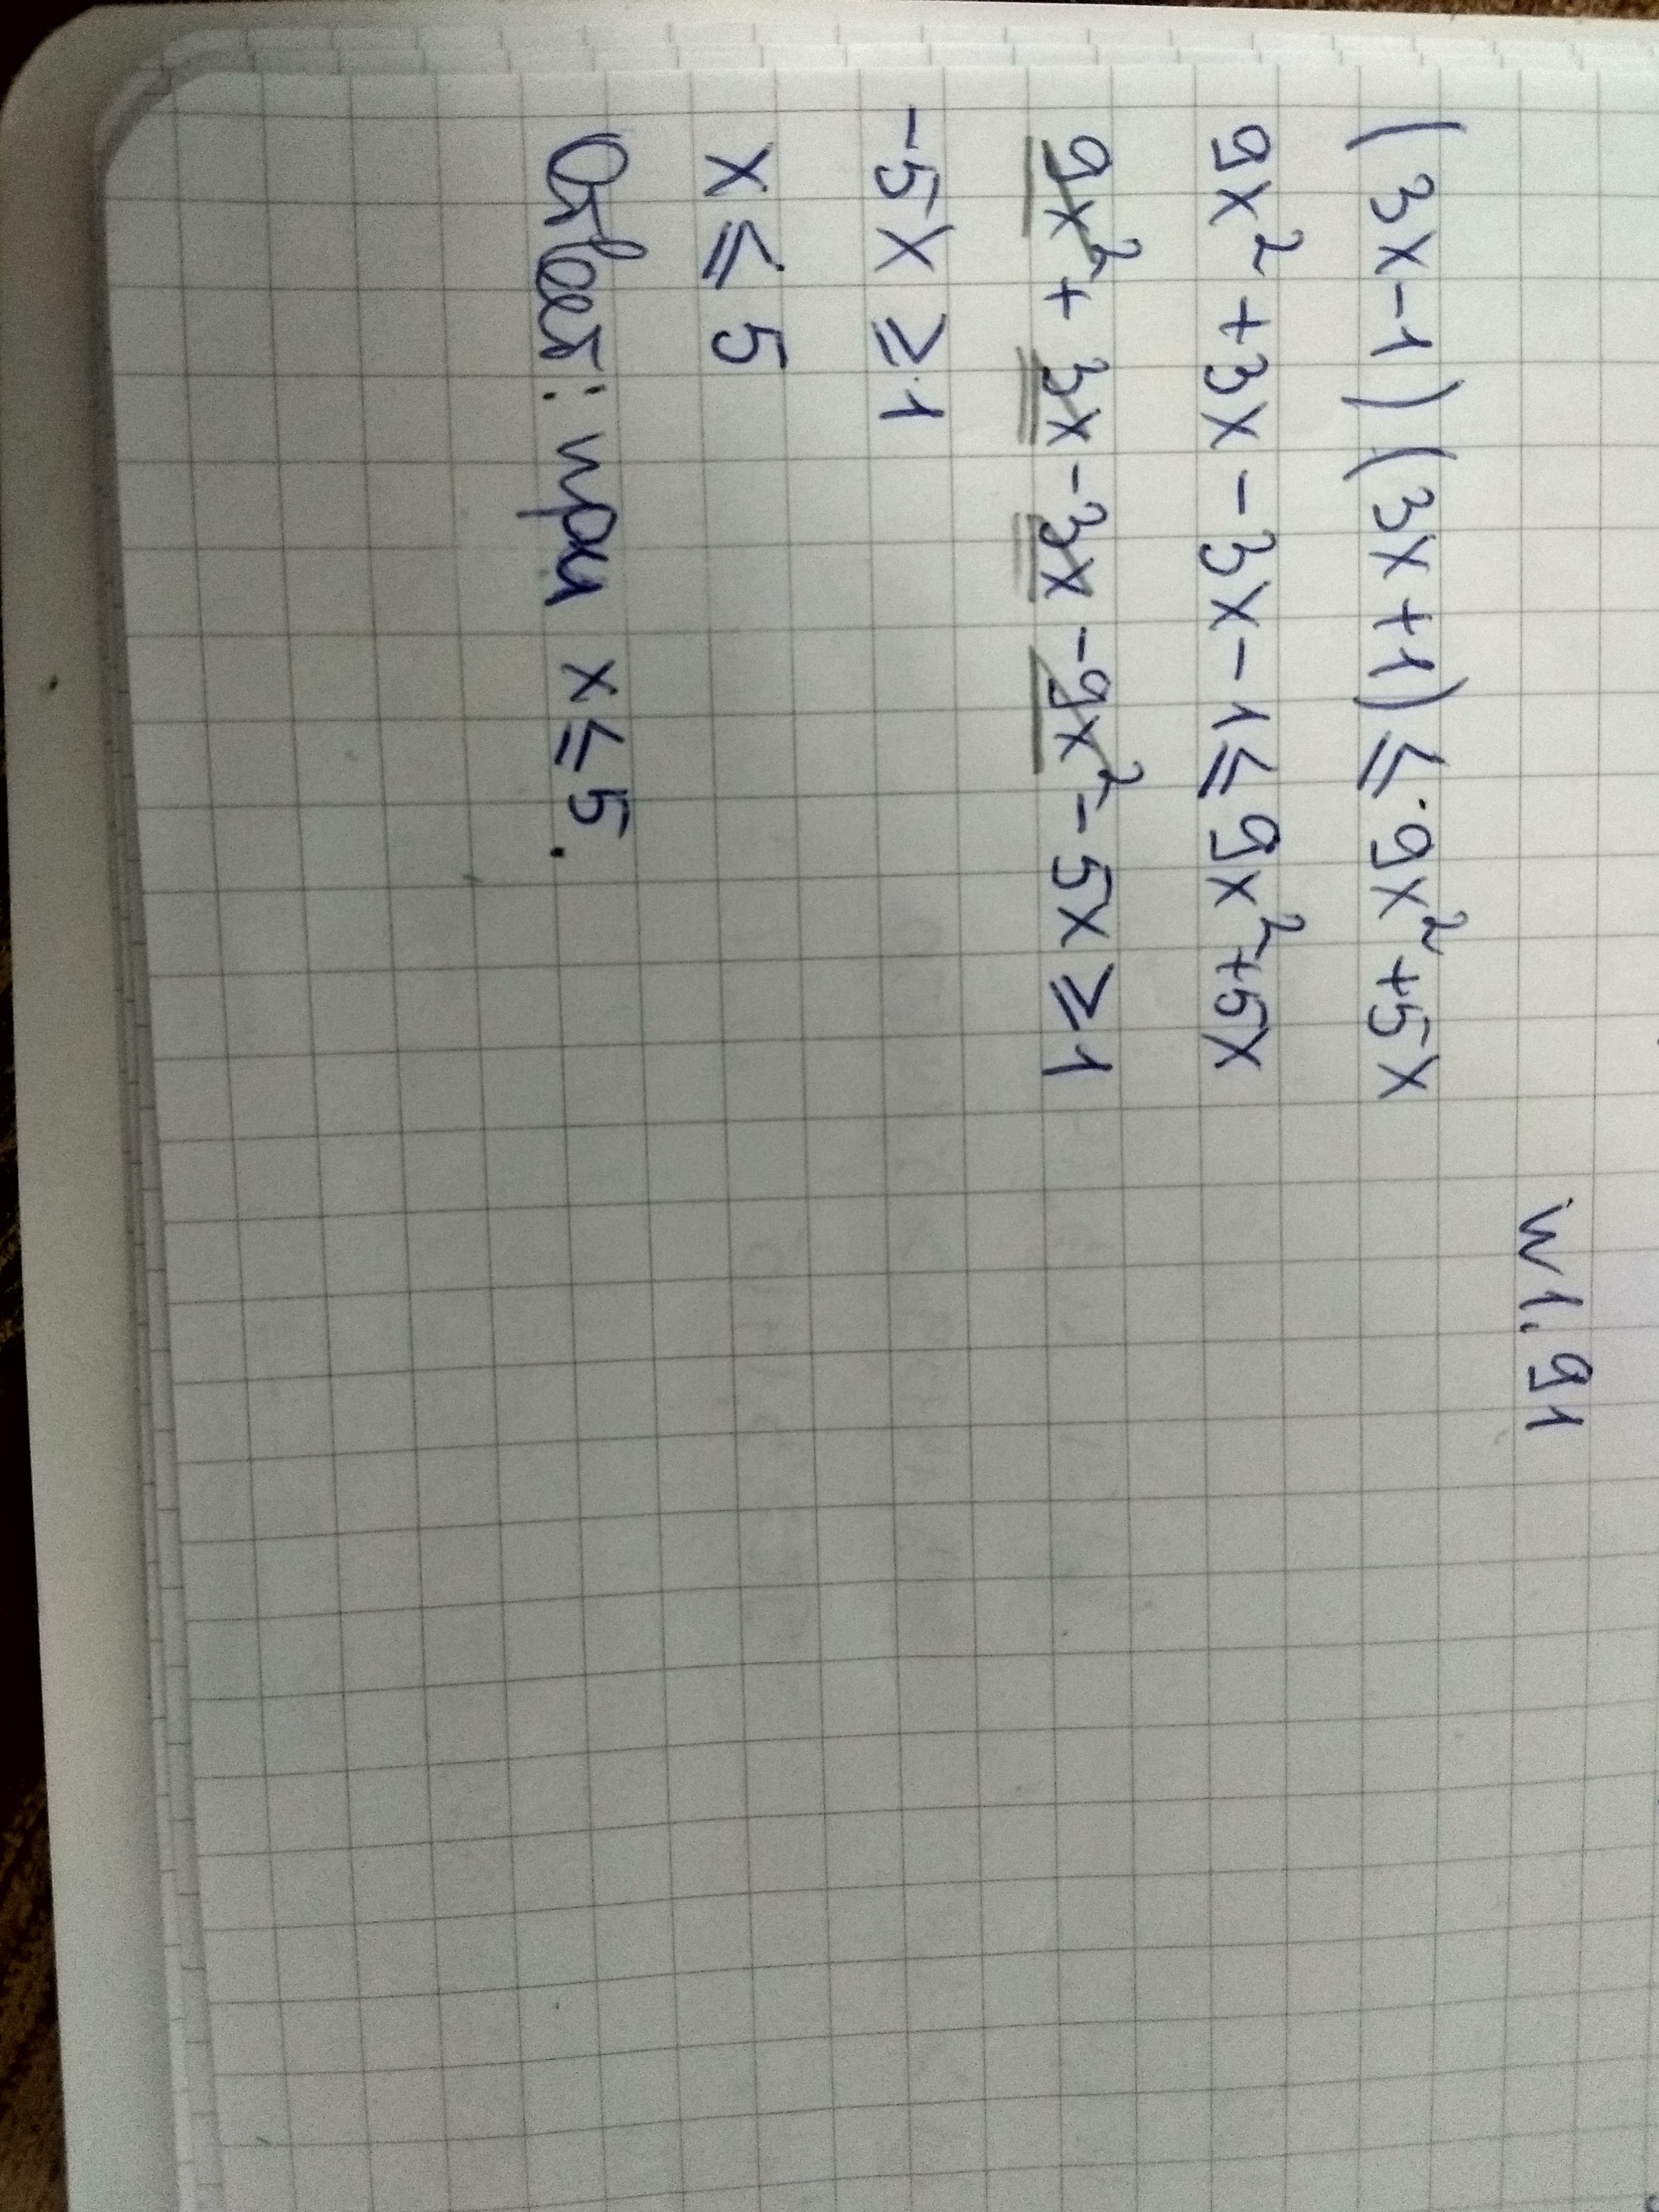 № 1.91
(3x-1)(3x+1) ≤ 9x²+5x
9x²+3x-3x-1 ≤ 9x²+5x
9x²+3x-3x-9x²-5x ≥ 1
-5x ≥ 1
x ≤ 5
Ответ: при x ≤ 5.